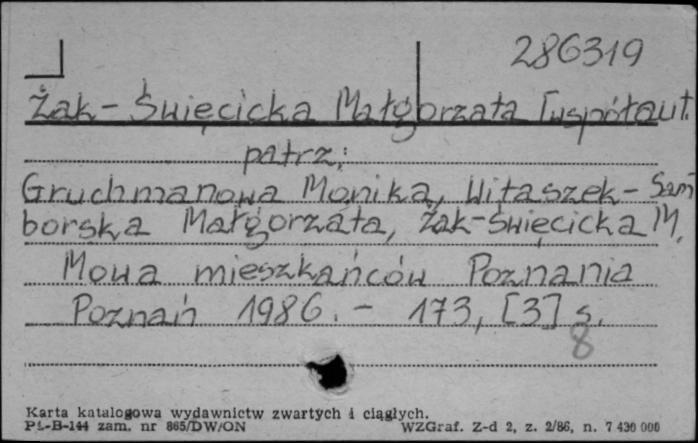 286319
Żak-Święcicka Małgorzata [współaut.
patrz:
Gruchmanowa Monika, Witaszek-Sam
borska Małgorzata, Żak-Święcicka M.
Mowa mieszkańców Poznania
Poznań 1986. - 173, [3] s.
8
Karta katalogowa wydawnictw zwartych i ciągłych.
Pł-B-144 zam. nr 865/DW/ON WZGraf. Z-d 2, z. 2/86, n. 7 430 000